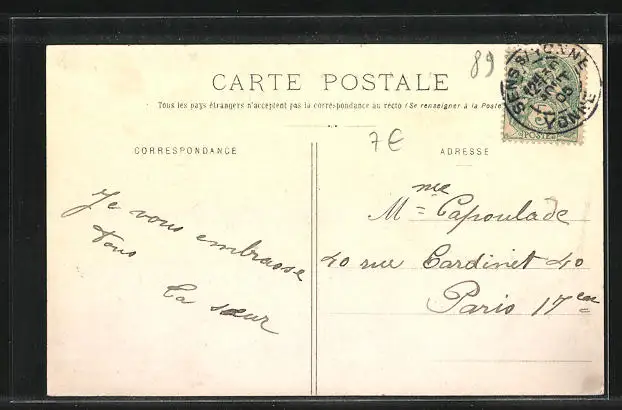 89
CARTE POSTALE
Tous les pays étrangers n'acceptent pas la correspondance au recto (Se renseigner à la Poste)
7€
CORRESPONDANCE
ADRESSE
Je vous embrasse
tous
ta sœur
Mme Capoulade
40 rue Cardinet 40
Paris 17eme
SENS S/YONNE
YONNE
POSTES